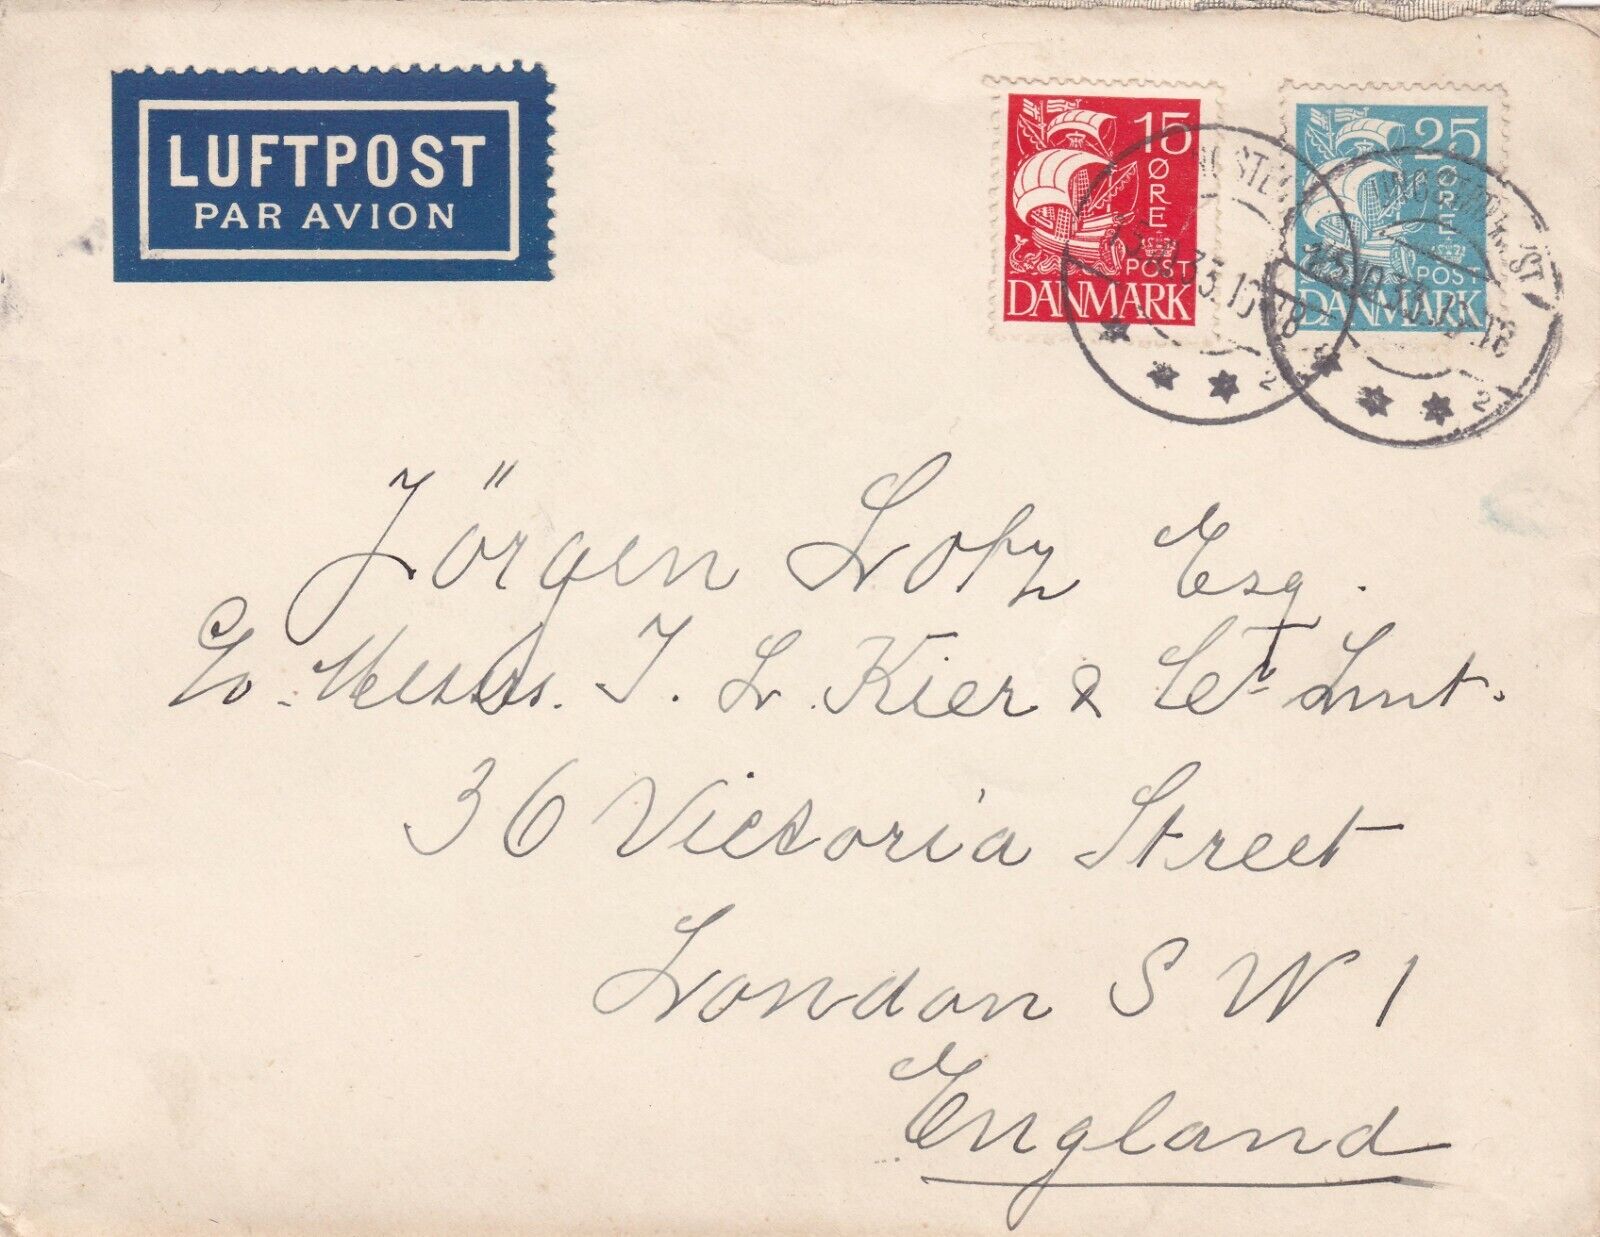 LUFTPOST
PAR AVION
15
ØRE
POST
DANMARK
25
ØRE
POST
DANMARK
2
2
Jörgen Esq.
C/o. Messrs. J. L. Kier & Co Lmt.
36 Victoria Street
London S W 1
England